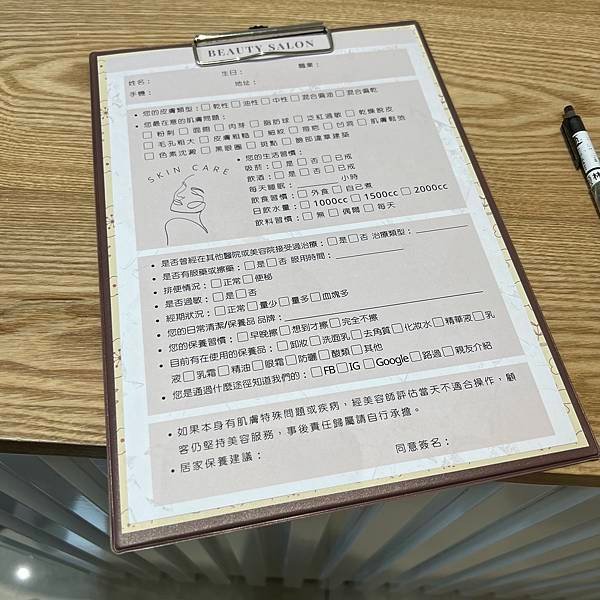 BEAUTY SALON
姓名： 生日： 職業：
手機： 地址：
• 您的皮膚類型：□乾性□油性□中性□混合偏油□混合偏乾
• 您最在意的肌膚問題：
□粉刺□面皰□肉芽□脂肪球□泛紅過敏□乾燥脫皮
□毛孔粗大□皮膚粗糙□細紋□痘疤□凹洞□肌膚鬆弛
□色素沉澱□黑眼圈□斑點□臉部違章建築
SKIN CARE
• 您的生活習慣：
吸菸：□是□否□已戒
飲酒：□是□否□已戒
每天睡眠：________小時
飲食習慣：□外食□自己煮
日飲水量：□1000cc□1500cc□2000cc
飲料習慣：□無□偶爾□每天
• 是否曾經在其他醫院或美容院接受過治療：□是□否 治療類型：________
• 是否有服藥或擦藥：□是□否 服用時間：________
• 排便情況：□正常□便秘
• 是否過敏：□是□否
• 經期狀況：□正常□量少□量多□血塊多
• 您的日常清潔/保養品 品牌：________
• 您的保養習慣：□早晚擦□想到才擦□完全不擦
• 目前有在使用的保養品：□卸妝□洗面乳□去角質□化妝水□精華液□乳
液□乳霜□精油□眼霜□防曬□酸類□其他
• 您是通過什麼途徑知道我們的：□FB□IG□Google□路過□親友介紹
• 如果本身有肌膚特殊問題或疾病，經美容師評估當天不適合操作，顧
客仍堅持美容服務，事後責任歸屬請自行承擔。
• 居家保養建議： 同意簽名：